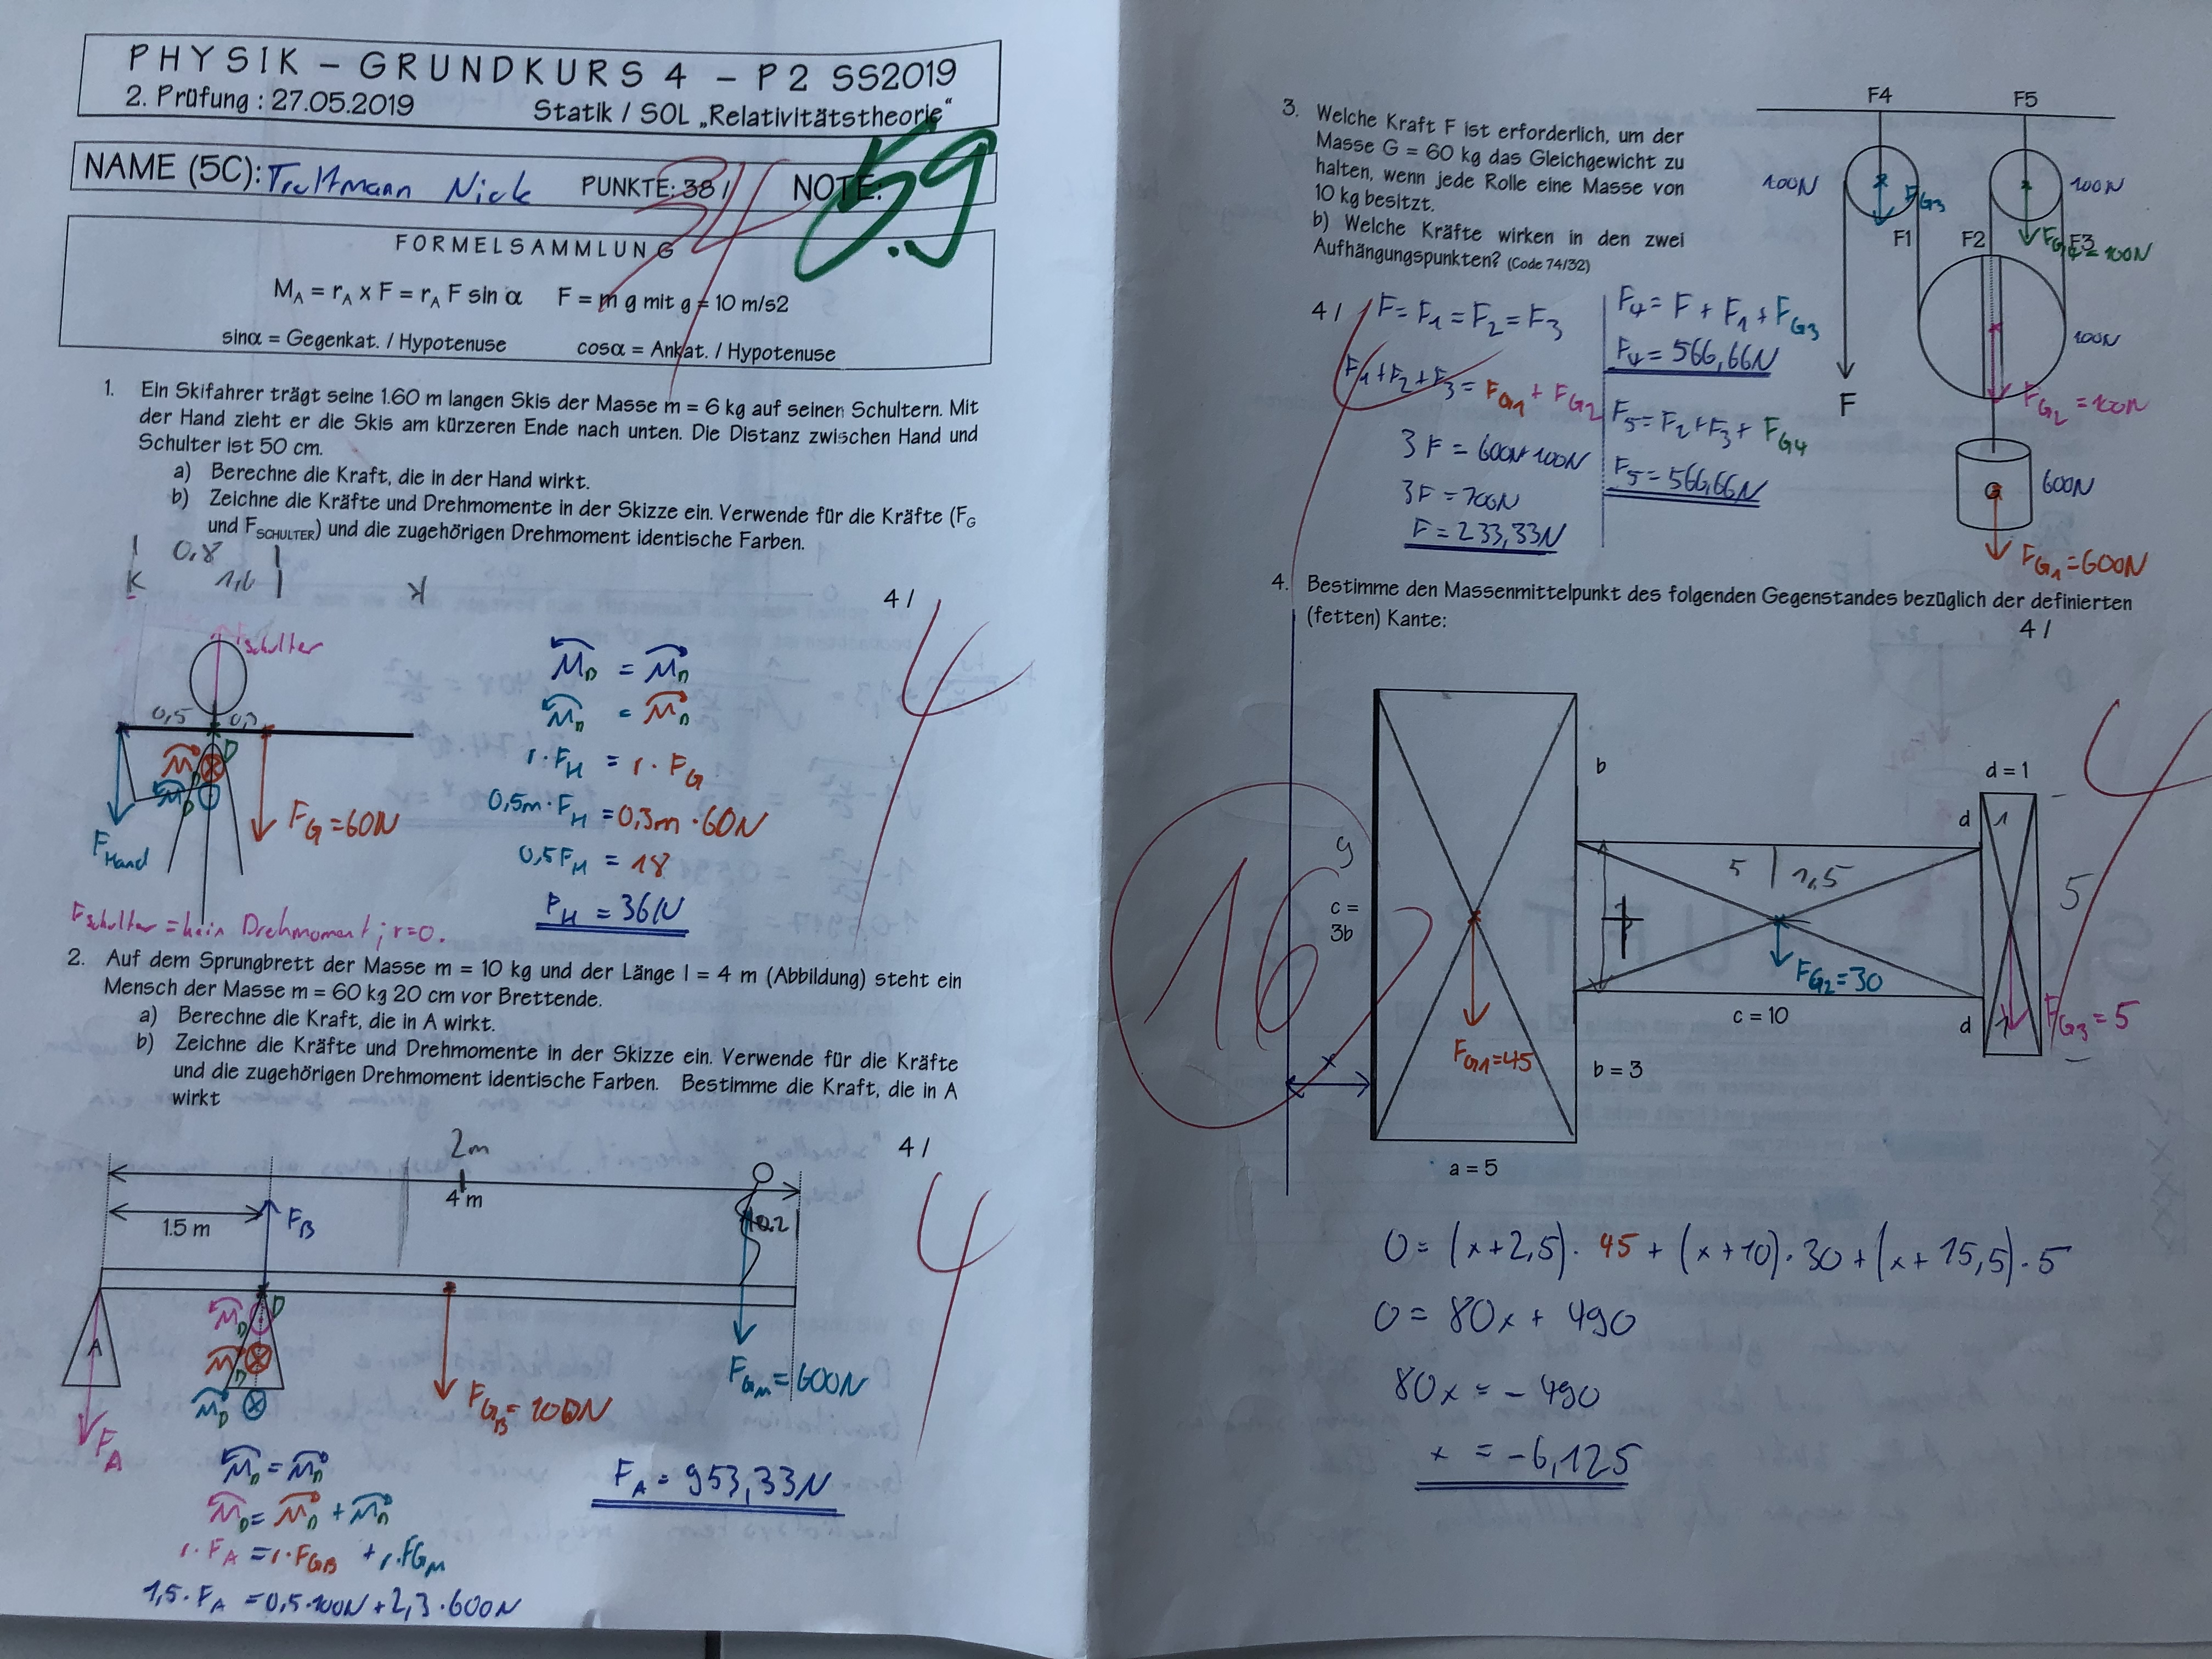 PHYSIK – GRUNDKURS 4 – P2 SS2019
2. Prüfung : 27.05.2019 Statik / SOL „Relativitätstheorie“
NAME (5C): Trottmann Nick PUNKTE: 38 / 34 NOTE: 5.9
FORMELSAMMLUNG
M_A = r_A x F = r_A F sin α F = m g mit g = 10 m/s2
sinα = Gegenkat. / Hypotenuse cosα = Ankat. / Hypotenuse
1. Ein Skifahrer trägt seine 1.60 m langen Skis der Masse m = 6 kg auf seinen Schultern. Mit
der Hand zieht er die Skis am kürzeren Ende nach unten. Die Distanz zwischen Hand und
Schulter ist 50 cm.
a) Berechne die Kraft, die in der Hand wirkt.
b) Zeichne die Kräfte und Drehmomente in der Skizze ein. Verwende für die Kräfte (F_G
und F_SCHULTER) und die zugehörigen Drehmoment identische Farben.
0,8
1,6
4 / 4
Fschulter
0,5 0,3
D
M D
M D
F_Hand
F_G = 60N
M_D = M_D
M_D = M_D
r · F_H = r · F_G
0,5m · F_H = 0,3m · 60N
0,5 F_H = 18
F_H = 36N
Fschulter = kein Drehmoment; r=0.
2. Auf dem Sprungbrett der Masse m = 10 kg und der Länge l = 4 m (Abbildung) steht ein
Mensch der Masse m = 60 kg 20 cm vor Brettende.
a) Berechne die Kraft, die in A wirkt.
b) Zeichne die Kräfte und Drehmomente in der Skizze ein. Verwende für die Kräfte
und die zugehörigen Drehmoment identische Farben. Bestimme die Kraft, die in A
wirkt
4 / 4
2m
4 m
1.5 m
F_B
0,2
D
A
M_D
M_D
M_D
F_A
F_GB = 100N
F_GM = 600N
M_D = M_D
M_D = M_D + M_D
r · F_A = r · F_GB + r · F_GM
1,5 · F_A = 0,5 · 100N + 2,3 · 600N
F_A = 953,33N
3. Welche Kraft F ist erforderlich, um der
Masse G = 60 kg das Gleichgewicht zu
halten, wenn jede Rolle eine Masse von
10 kg besitzt.
b) Welche Kräfte wirken in den zwei
Aufhängungspunkten? (Code 74/32)
4 /
F = F_1 = F_2 = F_3
F_1 + F_2 + F_3 = F_G1 + F_G2
3 F = 600N + 100N
3 F = 700N
F = 233,33N
F_4 = F + F_1 + F_G3
F_4 = 566,66N
F_5 = F_2 + F_3 + F_G4
F_5 = 566,66N
F4 F5
100N F_G3 100N
F1 F2 F3
F_G4 = 100N
100N
F
F_G2 = 100N
G 600N
F_G1 = 600N
4. Bestimme den Massenmittelpunkt des folgenden Gegenstandes bezüglich der definierten
(fetten) Kante:
4 / 4
16
b
d = 1
d 1
9
5 1,5
5
c =
3b
F_G2 = 30
F_G1 = 45
c = 10
d 1
F_G3 = 5
x
b = 3
a = 5
0 = (x + 2,5) · 45 + (x + 10) · 30 + (x + 15,5) · 5
0 = 80x + 490
80x = - 490
x = -6,125